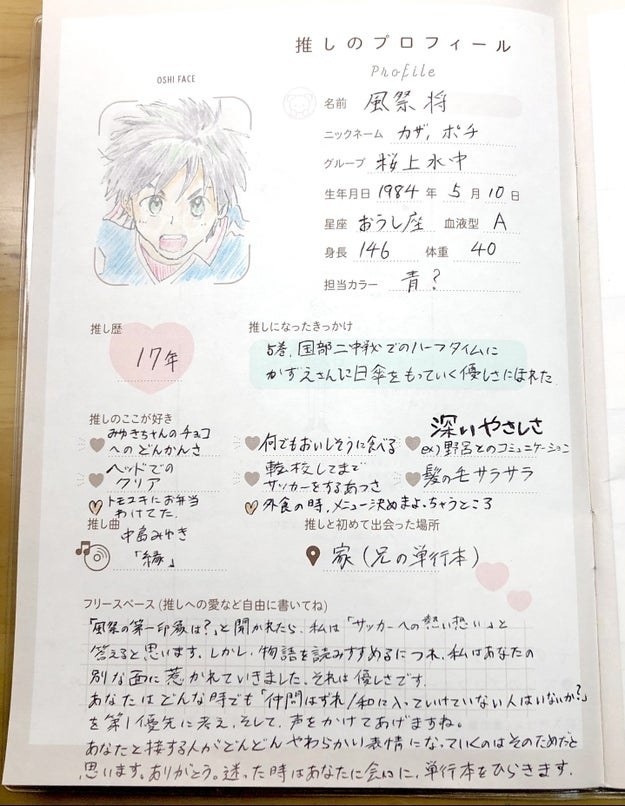 推しのプロフィール
Profile
OSHI FACE
名前 風祭 将
ニックネーム カザ, ポチ
グループ 桜上水中
生年月日 1984 年 5 月 10 日
星座 おうし座 血液型 A
身長 146 体重 40
担当カラー 青?
推し歴
17年
推しになったきっかけ
5巻, 国部二中戦でのハーフタイムに
かずえさんに日傘をもっていく優しさにほれた
推しのここが好き
みゆきちゃんのチョコ
へのどんかんさ
何でもおいしそうに食べる
深いやさしさ
ex) 野呂とのコミュニケーション
ヘッドでの
クリア
転校してまで
サッカーをするあつさ
髪の毛サラサラ
トモユキにお弁当
わけてた.
外食の時, メニュー決めまよっちゃうところ
推し曲
中島みゆき
「縁」
推しと初めて出会った場所
家 (兄の単行本)
フリースペース (推しへの愛など自由に書いてね)
「風祭の第一印象は?」と聞かれたら, 私は「サッカーへの熱い想い」と
答えると思います. しかし, 物語を読みすすめるにつれ, 私はあなたの
別な面に惹かれていきました. それは優しさです.
あなたはどんな時でも「仲間はずれ/和に入っていけていない人はいないか?」
を第1優先に考え, そして, 声をかけてあげますね.
あなたと接する人がどんどんやわらかい表情になっていくのはそのためだと
思います. ありがとう. 迷った時はあなたに会いに, 単行本をひらきます.